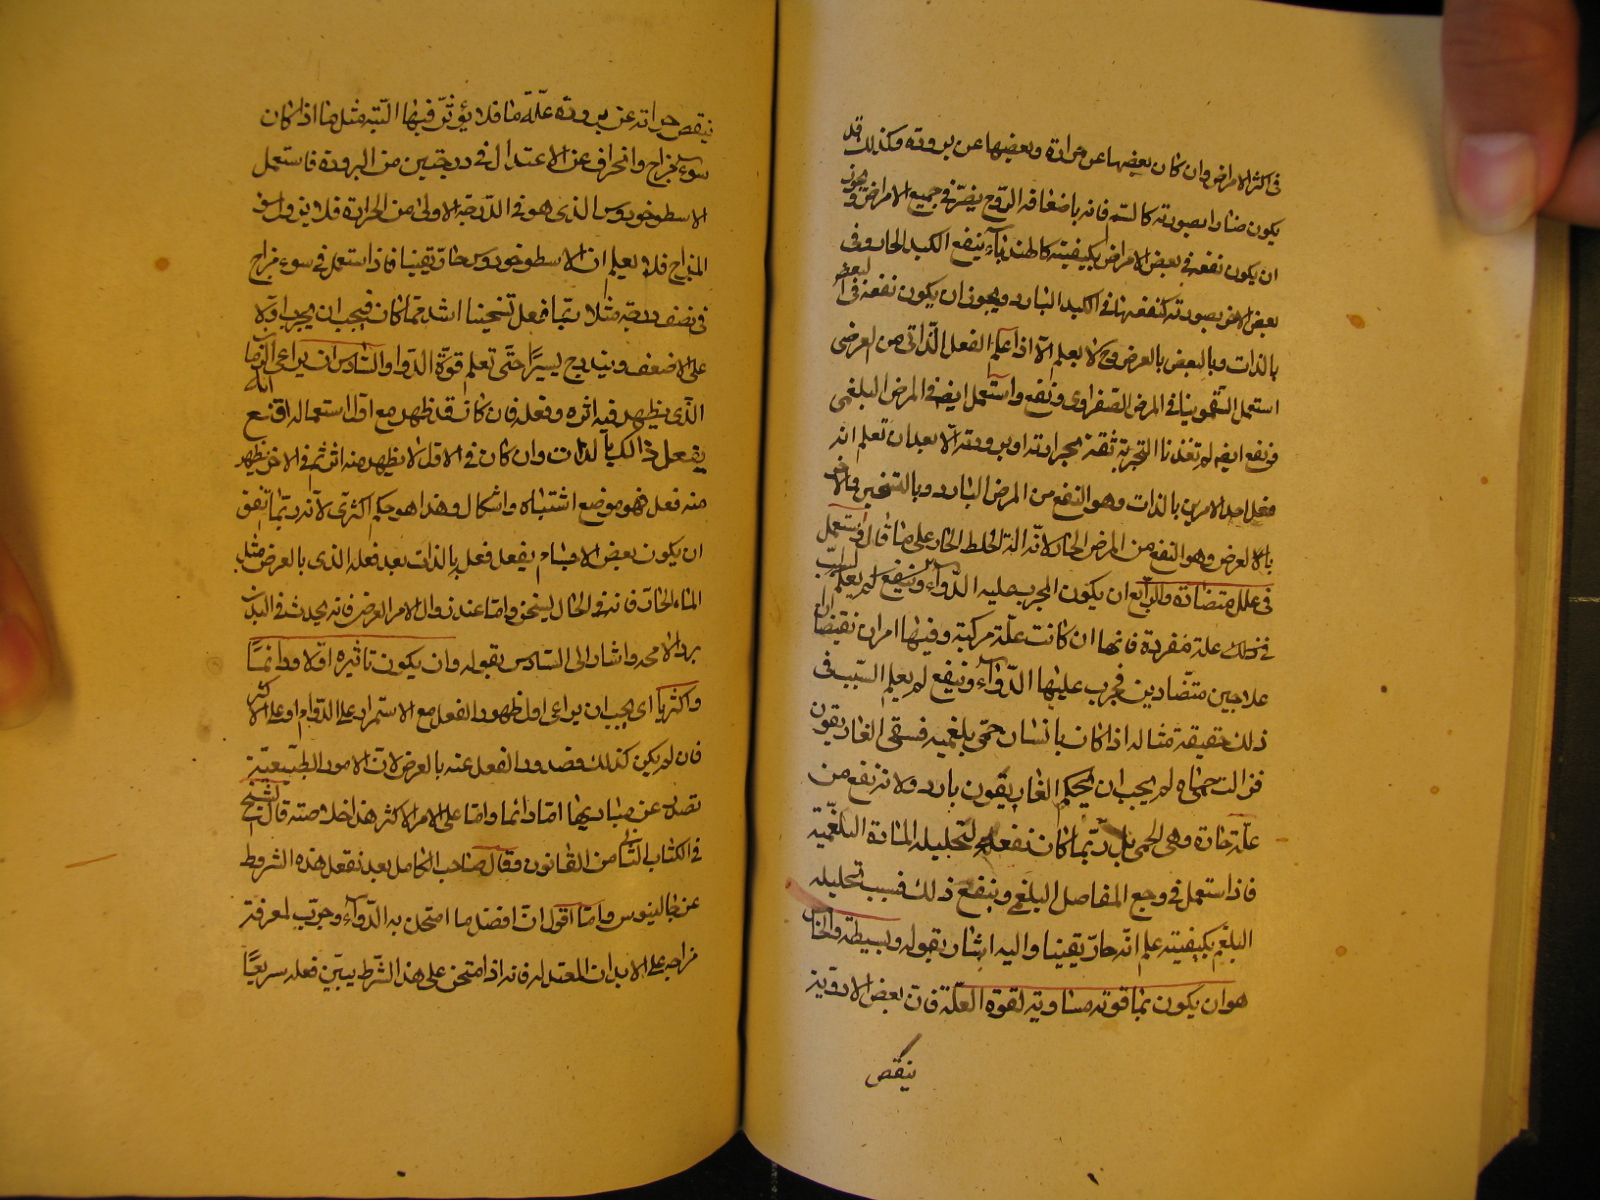 فى اكثر الامراض وان كان بعضها عن حرارة وبعضها عن برودة وكذلك قد
يكون ضارا بصورته كالسم فانه باضعافه الروح يضر فى جميع الامراض ويجوز
ان يكون نفعه فى بعض الامراض بكيفيته كالهندباء ينفع الكبد الحار وفى
بعض الاخر بصورته كنفعها فى الكبد البارد ويجوز ان يكون نفعه فى البعض
بالذات وبالبعض بالعرض وح لا يعلم الا اذا علم الفعل الذاتى من العرضى
استعمل السقمونيا فى المرض الصفراوى ونفع واستعمل ايضه فى المرض البلغمى
ونفع ايضه لم تفدنا التجربة ثقة بحرارته او برودته الا بعد ان تعلم انه
فعل احد الامرين بالذات وهو النفع من المرض البارد وبالتسخين والاخر
بالعرض وهو النفع من المرض الحار لانه الة الخلط الحار على ما قال واستعمل
فى علل متضادة والرابع ان يكون المجرب عليه الدواء وينفع لم يعلم السبب
فى ذلك علة مفردة فانها ان كانت علة مركبة وفيها امران يقتضيان
علاجين متضادين فجرب عليها الدواء ونفع لم يعلم السبب فى
ذلك حقيقة مثاله اذا كان بانسان حمى بلغمية فسقى الغاريقون
فزالت حماه لم يجب ان يحكم الغاريقون بارد ولانه نفع من
علة حارة وهى الحمى بل ربما كان نفعه لتحليله المادة البلغمية
فاذا استعمل فى وجع المفاصل البلغمى وينفع ذلك فبسبب تحليله
البلغم بكيفيته علم انه حار يقينا واليه اشار بقوله وبسيطة والخامس
هو ان يكون بما قوته مساوية لقوة العلة فان بعض الادوية
ينقص
ينقص حرارته عن برودة علة ما فلا يؤثر فيها البتة مثل ما اذا كان
سوء بمزاج وانحراف عن الاعتدال فى درجتين من البرودة فاستعمل
الاسطوخودوس الذى هو فى الدرجة الاولى من الحرارة فلا يزول سوء
المزاج فلا يعلم ان الاسطوخودوس حار يقينا فاذا استعمل فى سوء مزاج
فى نصف درجة مثلا ربما فعل تسخينا اشد مما كان فيجب ان يجرب اولا
على الاضعف ويتدرج يسيرا حتى تعلم قوة الدواء والسادس ان يراعى الزمان
الذى يظهر فيه اثره وفعله فان كان قد ظهر مع اول استعماله اقنع انه
يفعل ذالك بالذات وان كان فى الاول لا يظهر منه اثر ثم فى الاخر يظهر
منه فعل فهو موضع اشتباه واشكال وهذا هو حكم اكثرى لانه ربما اتفق
ان يكون بعض الاجسام يفعل فعله بالذات بعد فعله الذى بالعرض مثل
الماء الحار فانه فى الحال يسخن واما عند زوال الامر العرضى فانه يحدث فى البدن
بردا لا محه واشار الى السادس بقوله وان يكون تاثيره اولا ودائميا
واكثريا اى يجب ان يراعى اول ظهور الفعل مع الاستمرار على الدوام او على الاكثر
فان لم يكن كذلك فصدور الفعل عنه بالعرض لان الامور الطبيعية
تصدر عن مباديها اما دائما واما على الامر الاكثر هذا خلاصة ما قال الشيخ
فى الكتاب الثانى من القانون وقال صاحب الكامل بعد نقل هذه الشروط
عن جالينوس واما اقول ان افضل ما امتحن به الدواء وجرب لمعرفة
مزاجه على الابدان المعتدله فانه اذا امتحن على هذا الشرط يبين فعله سريعا